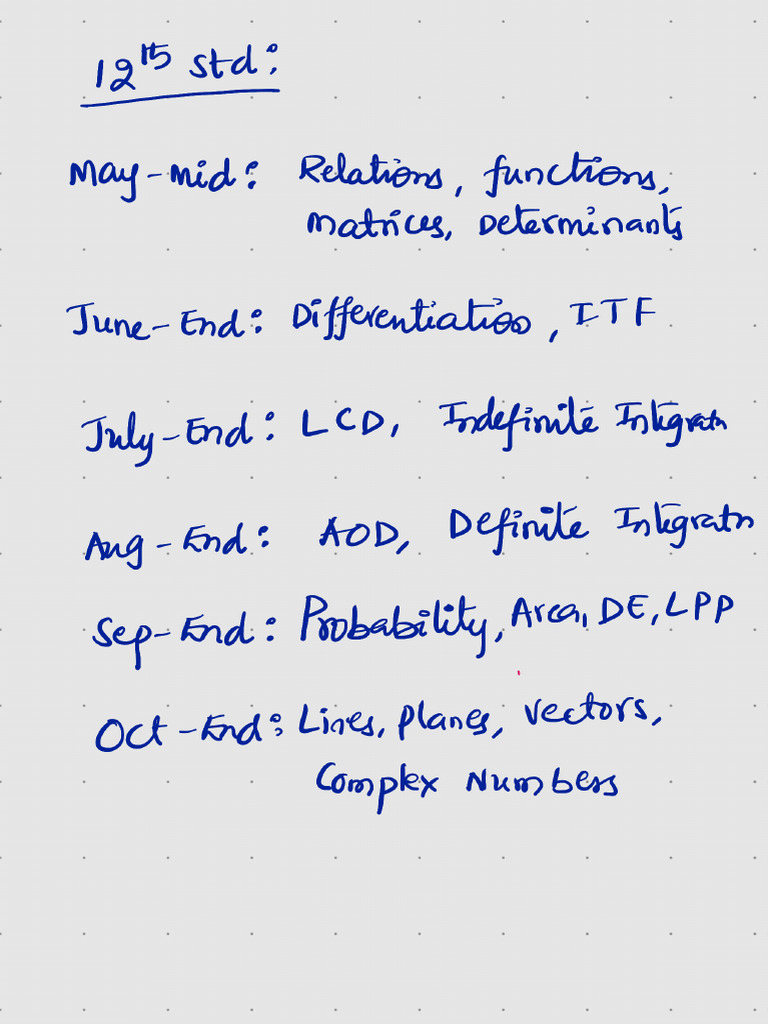 12th std:
May-Mid: Relations, functions,
Matrices, Determinants
June-End: Differentiation, ITF
July-End: LCD, Indefinite Integratn
Aug-End: AOD, Definite Integratn
Sep-End: Probability, Area, DE, LPP
Oct-End: Lines, planes, vectors,
Complex Numbers